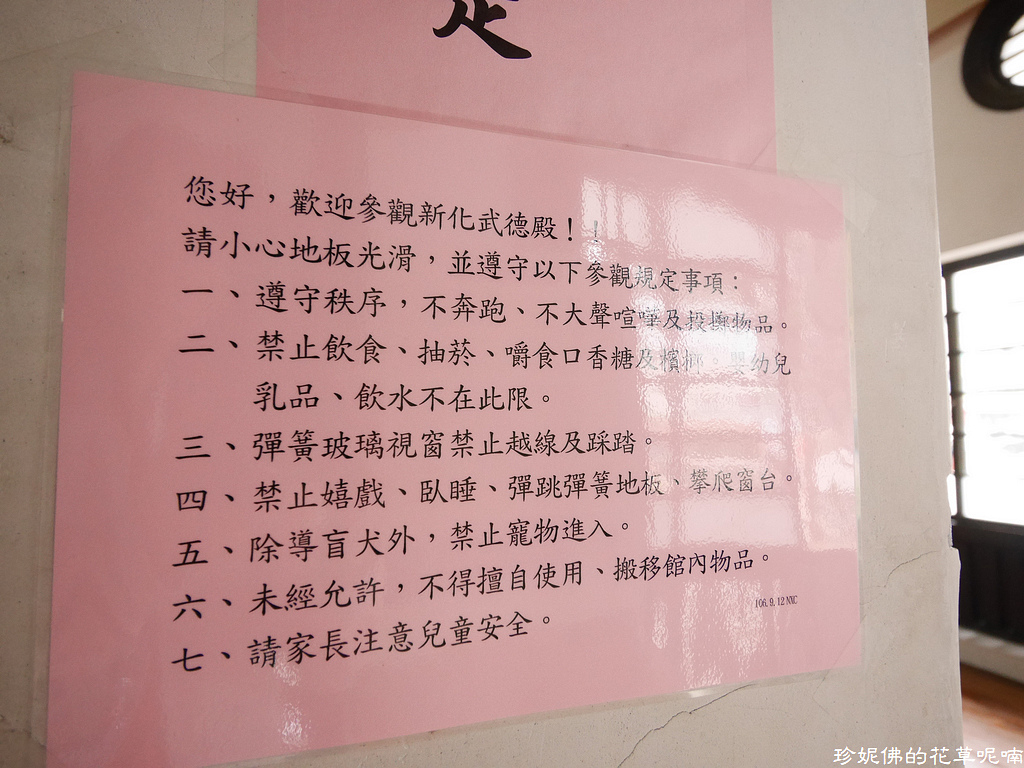 定
您好，歡迎參觀新化武德殿！！
請小心地板光滑，並遵守以下參觀規定事項：
一、遵守秩序，不奔跑、不大聲喧嘩及投擲物品。
二、禁止飲食、抽菸、嚼食口香糖及檳榔。嬰幼兒
乳品、飲水不在此限。
三、彈簧玻璃視窗禁止越線及踩踏。
四、禁止嬉戲、臥睡、彈跳彈簧地板、攀爬窗台。
五、除導盲犬外，禁止寵物進入。
六、未經允許，不得擅自使用、搬移館內物品。
七、請家長注意兒童安全。
106.9.12 NXC
珍妮佛的花草呢喃